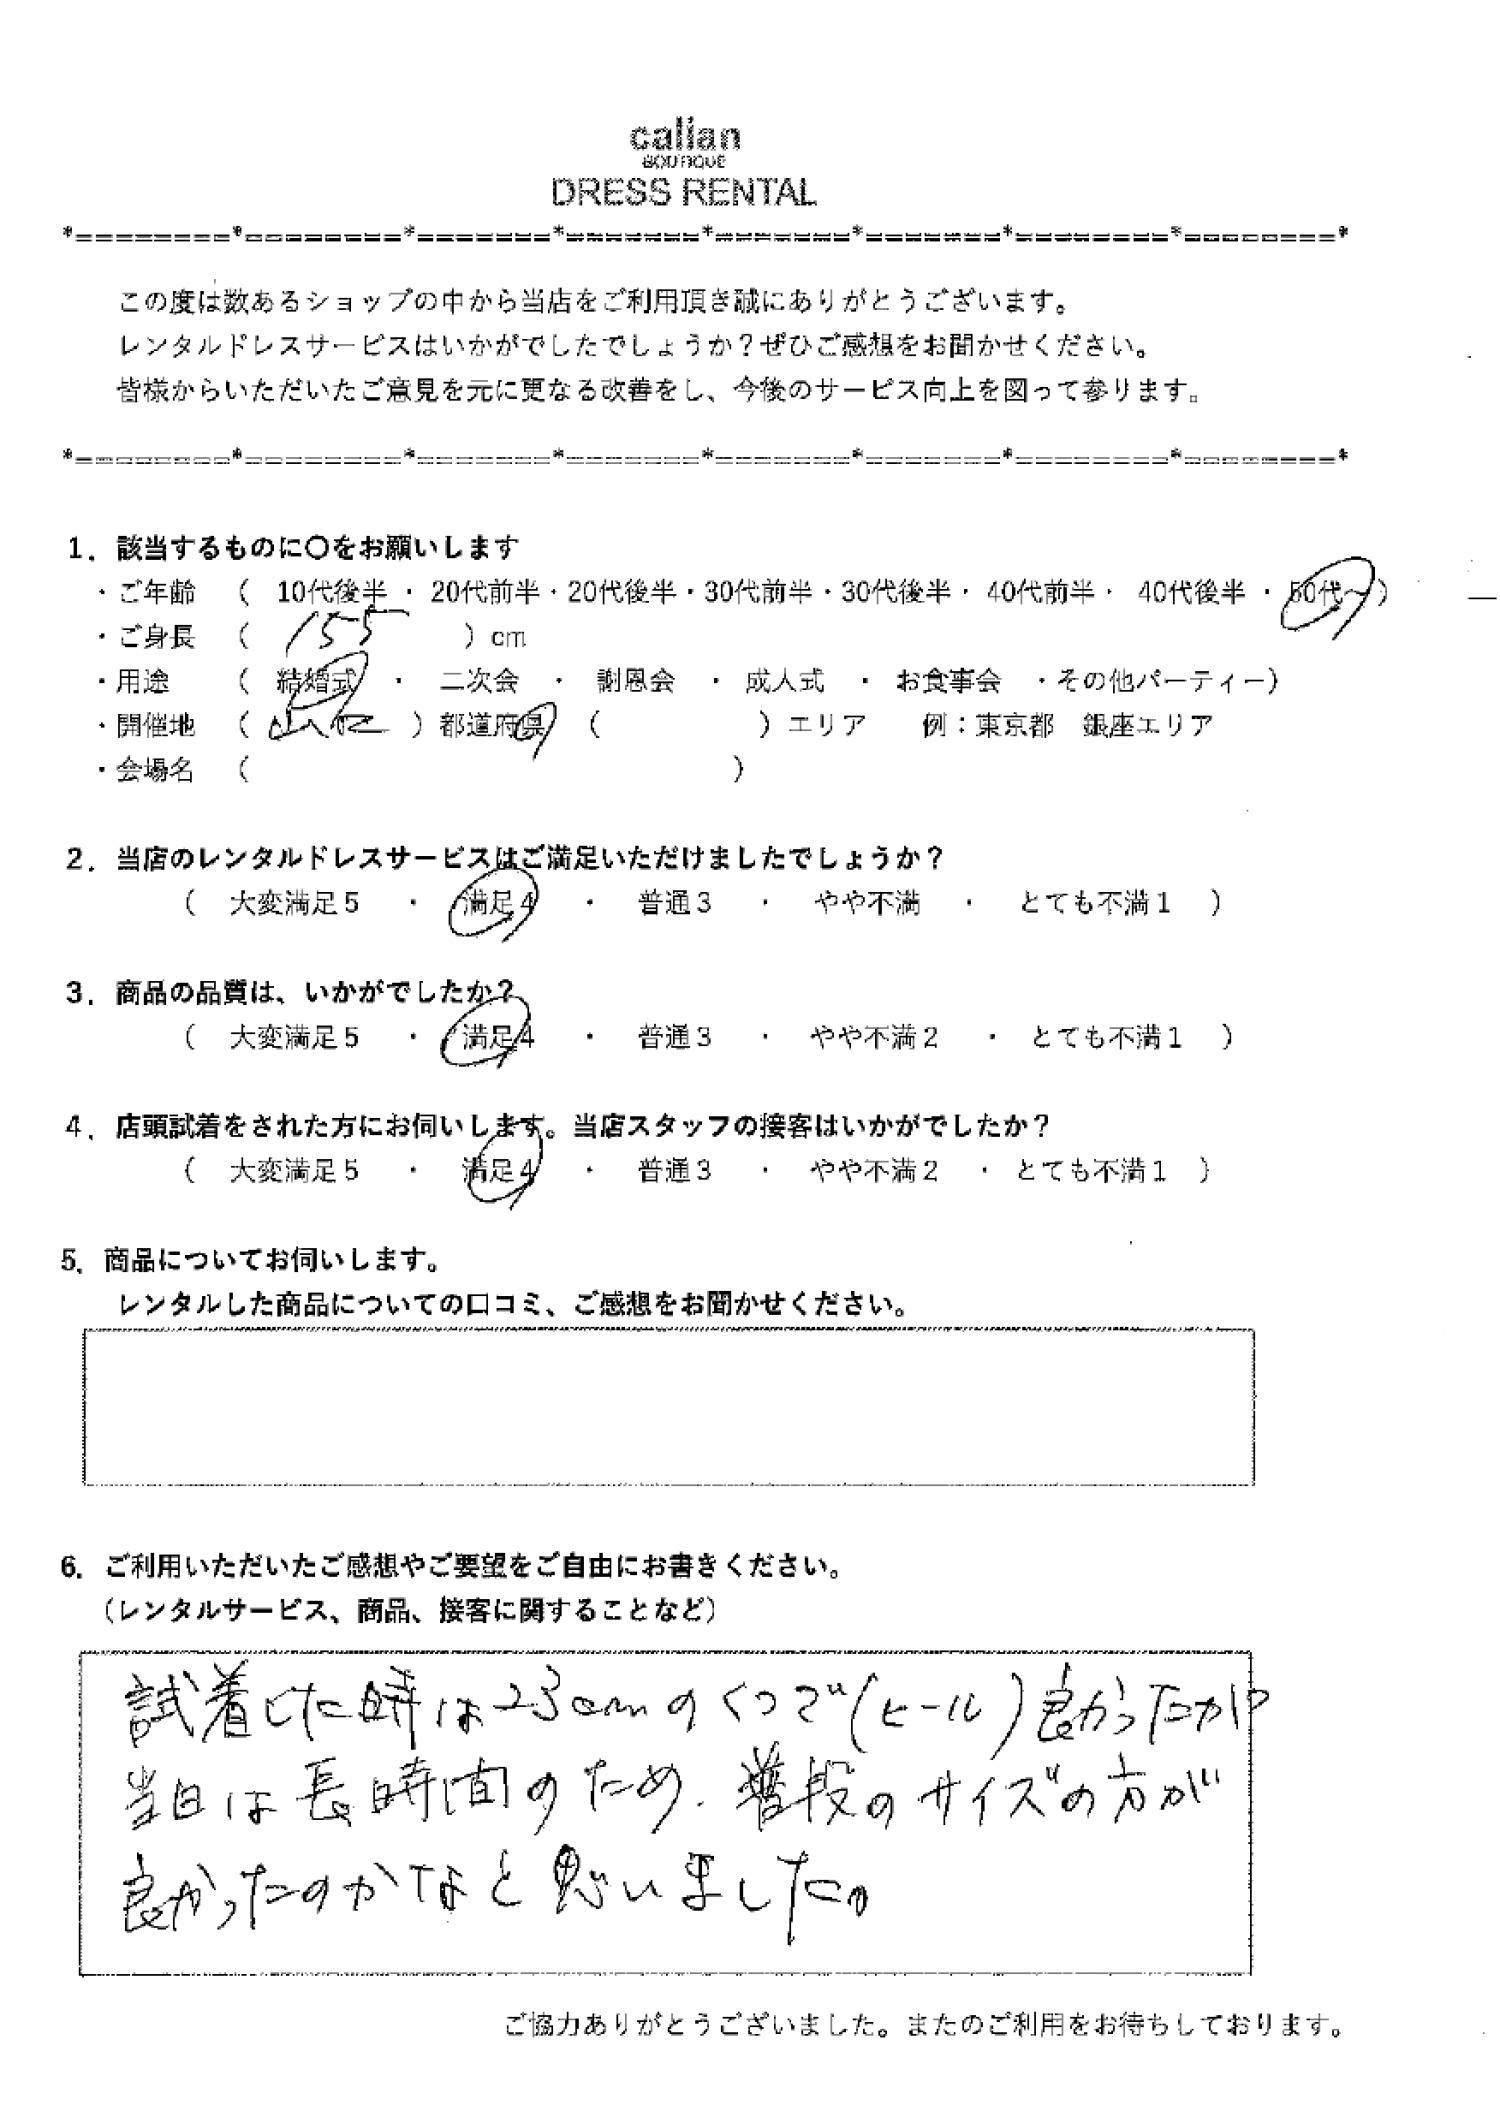 calian
BOUTIQUE
DRESS RENTAL
*========*========*=======*=======*=======*=======*========*========*
この度は数あるショップの中から当店をご利用頂き誠にありがとうございます。
レンタルドレスサービスはいかがでしたでしょうか？ぜひご感想をお聞かせください。
皆様からいただいたご意見を元に更なる改善をし、今後のサービス向上を図って参ります。
*========*========*=======*=======*=======*=======*========*========*
1．該当するものに〇をお願いします
・ご年齢　（　10代後半 ・ 20代前半・20代後半・30代前半・30代後半・ 40代前半・ 40代後半 ・ 50代～）
・ご身長　（　155　）cm
・用途　（　結婚式　・　二次会　・　謝恩会　・　成人式　・　お食事会　・その他パーティー）
・開催地　（　山口　）都道府県　（　　　）エリア　例：東京都　銀座エリア
・会場名　（　　　）
2．当店のレンタルドレスサービスはご満足いただけましたでしょうか？
（　大変満足５　・　満足４　・　普通３　・　やや不満　・　とても不満１　）
3．商品の品質は、いかがでしたか？
（　大変満足５　・　満足４　・　普通３　・　やや不満２　・　とても不満１　）
4．店頭試着をされた方にお伺いします。当店スタッフの接客はいかがでしたか？
（　大変満足５　・　満足４　・　普通３　・　やや不満２　・　とても不満１　）
5．商品についてお伺いします。
レンタルした商品についての口コミ、ご感想をお聞かせください。
6．ご利用いただいたご感想やご要望をご自由にお書きください。
（レンタルサービス、商品、接客に関することなど）
試着した時は23cmのくつで(ヒール)良かったが
当日は長時間のため、普段のサイズの方が
良かったのかなと思いました。
ご協力ありがとうございました。またのご利用をお待ちしております。